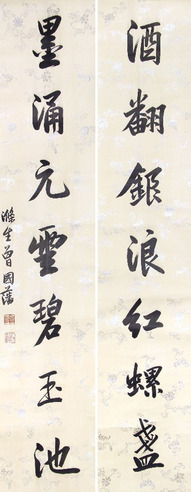 酒翻銀浪红螺盞
墨涌元靈碧玉池
滌生曾國藩